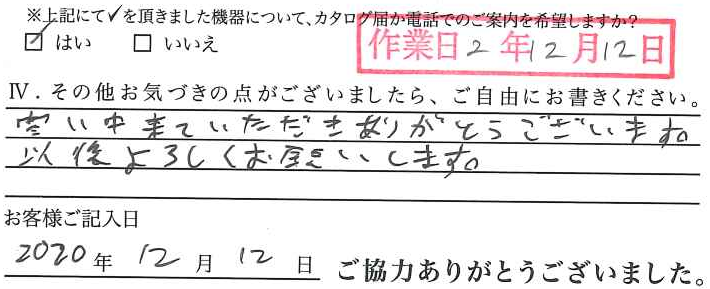 ※上記にて✓を頂きました機器について、カタログ届か電話でのご案内を希望しますか?
☑ はい □ いいえ
作業日2年12月12日
Ⅳ．その他お気づきの点がございましたら、ご自由にお書きください。
寒い中来ていただきありがとうございます。
以後よろしくお願いします。
お客様ご記入日
2020年 12月 12日 ご協力ありがとうございました。